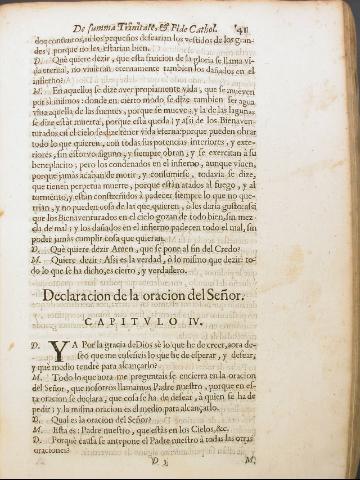 De summa Trinitate, & Fide Cathol. 41
dos contentos, ni los pequeños desearian los vestidos de los gran-
des, porque no les estarian bien.
D. Què quiere dezir, que esta fruicion de la gloria se llama vi-
da eterna, no viuieran eternamente tambien los dañados en el
infierno?
M. En aquellos se dize aver propiamente vida, que se mueven
por si mismos: donde en cierto modo se dize tambien ser agua
viua aquella de las fuentes, porque se mueve; y la de las lagunas
se dize estàr muerta, porque està queda; y assi de los Bienaven-
turados en el cielo se dize tener vida eterna: porque pueden obrar
todo lo que quieren, con todas sus potencias interiores, y exte-
riores, sin estorvo alguno, y siempre obran, y se exercitan à su
beneplacito; pero los condenados en el infierno, aunque viuen,
porque jamàs acaban de morir, y consumirse, todavia se dize,
que tienen perpetua muerte, porque estàn atados al fuego, y al
tormento, y estàn constreñidos à padecer siempre lo que no que-
rrian, y no pueden cosa de las que quieren, ò les daria gusto: assi
que los Bienaventurados en el cielo gozan de todo bien, sin mez-
cla de mal; y los dañados en el infierno padecen todo el mal, sin
poder jamàs cumplir cosa que quieran.
D. Què quiere dezir Amen, que se pone al fin del Credo?
M. Quiere dezir: Assi es la verdad, ò lo mismo que dezir: to-
do lo que se ha dicho, es cierto, y verdadero.
Declaracion de la oracion del Señor.
CAPITVLO IV.
D. YA Por la gracia de Dios sè lo que he de creer, aora de-
seo que me enseñeis lo que he de esperar, y desear,
y què medio tendrè para alcançarlo?
M. Todo lo que aora me preguntais se encierra en la oracion
del Señor, que nosotros llamamos Padre nuestro, porque en es-
ta oracion se declara, que cosa se ha de desear, à quien se ha de
pedir; y la misma oracion es el medio para alcançarlo.
D. Qual es la oracion del Señor?
M. Esta es: Padre nuestro, que estàs en los Cielos, &c.
D. Porquè causa se antepone el Padre nuestro à todas las otras
oraciones?
M.